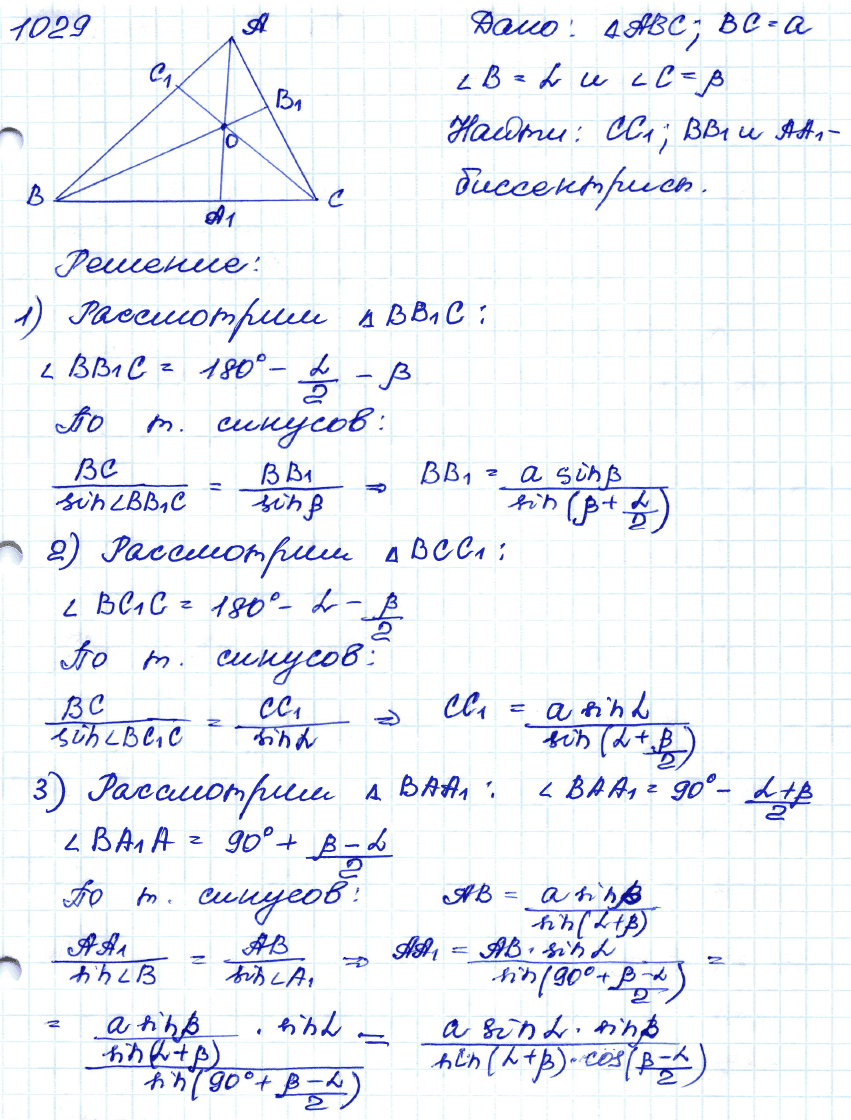 1029
A
C₁
B₁
O
B
A₁
C
Дано: △ABC; BC = a
∠B = α и ∠C = β
Найти: CC₁; BB₁ и AA₁ -
биссектрисы.
Решение:
1) Рассмотрим △BB₁C:
∠BB₁C = 180° - α/2 - β
По т. синусов:
BC/sin∠BB₁C = BB₁/sinβ ⇒ BB₁ = a sinβ/sin(β + α/2)
2) Рассмотрим △BCC₁:
∠BC₁C = 180° - α - β/2
По т. синусов:
BC/sin∠BC₁C = CC₁/sinα ⇒ CC₁ = a sinα/sin(α + β/2)
3) Рассмотрим △BAA₁: ∠BAA₁ = 90° - (α+β)/2
∠BA₁A = 90° + (β-α)/2
По т. синусов: AB = a sinβ/sin(α+β)
AA₁/sin∠B = AB/sin∠A₁ ⇒ AA₁ = AB · sinα/sin(90° + (β-α)/2) =
= (a sinβ/sin(α+β) · sinα)/sin(90° + (β-α)/2) = a sinα · sinβ/sin(α+β) · cos((β-α)/2)